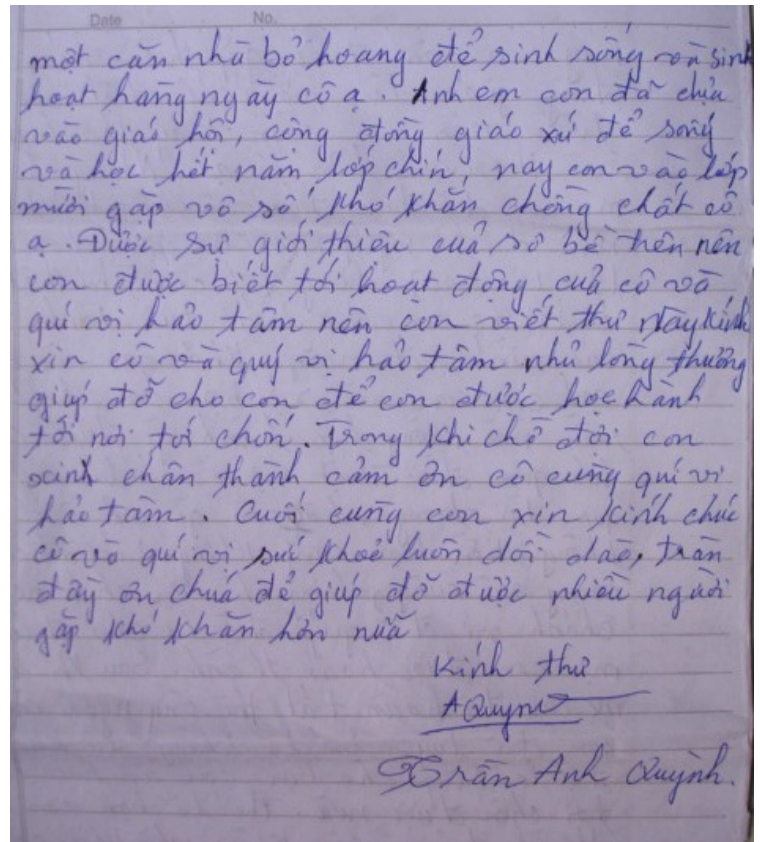 Date No.
một căn nhà bỏ hoang để sinh sống và sinh
hoạt hàng ngày cô ạ. Anh em con đã dựa
vào giáo hội, cộng đồng giáo xứ để sống
và học hết năm lớp chín, nay con vào lớp
mười gặp vô số khó khăn chồng chất cô
ạ. Được sự giới thiệu của sơ bề trên nên
con được biết tới hoạt động của cô và
quí vị hảo tâm nên con viết thư này kính
xin cô và quý vị hảo tâm nhủ lòng thương
giúp đỡ cho con để con được học hành
tới nơi tới chốn. Trong khi chờ đợi con
xinh chân thành cảm ơn cô cùng quí vị
hảo tâm. Cuối cùng con xin kính chúc
cô và quí vị sức khoẻ luôn dồi dào, tràn
đầy ơn chúa để giúp đỡ được nhiều người
gặp khó khăn hơn nữa
Kính thư
AQuynh
Trần Anh Quỳnh.